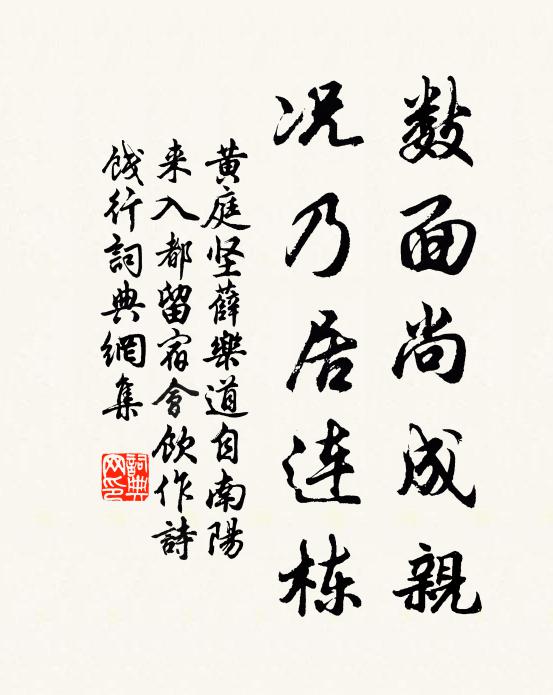 数面尚成親
况乃居连栋
黄庭坚薛樂道自南陽
来入都留宿會飲作詩
餞行詞典網集
詞典网印